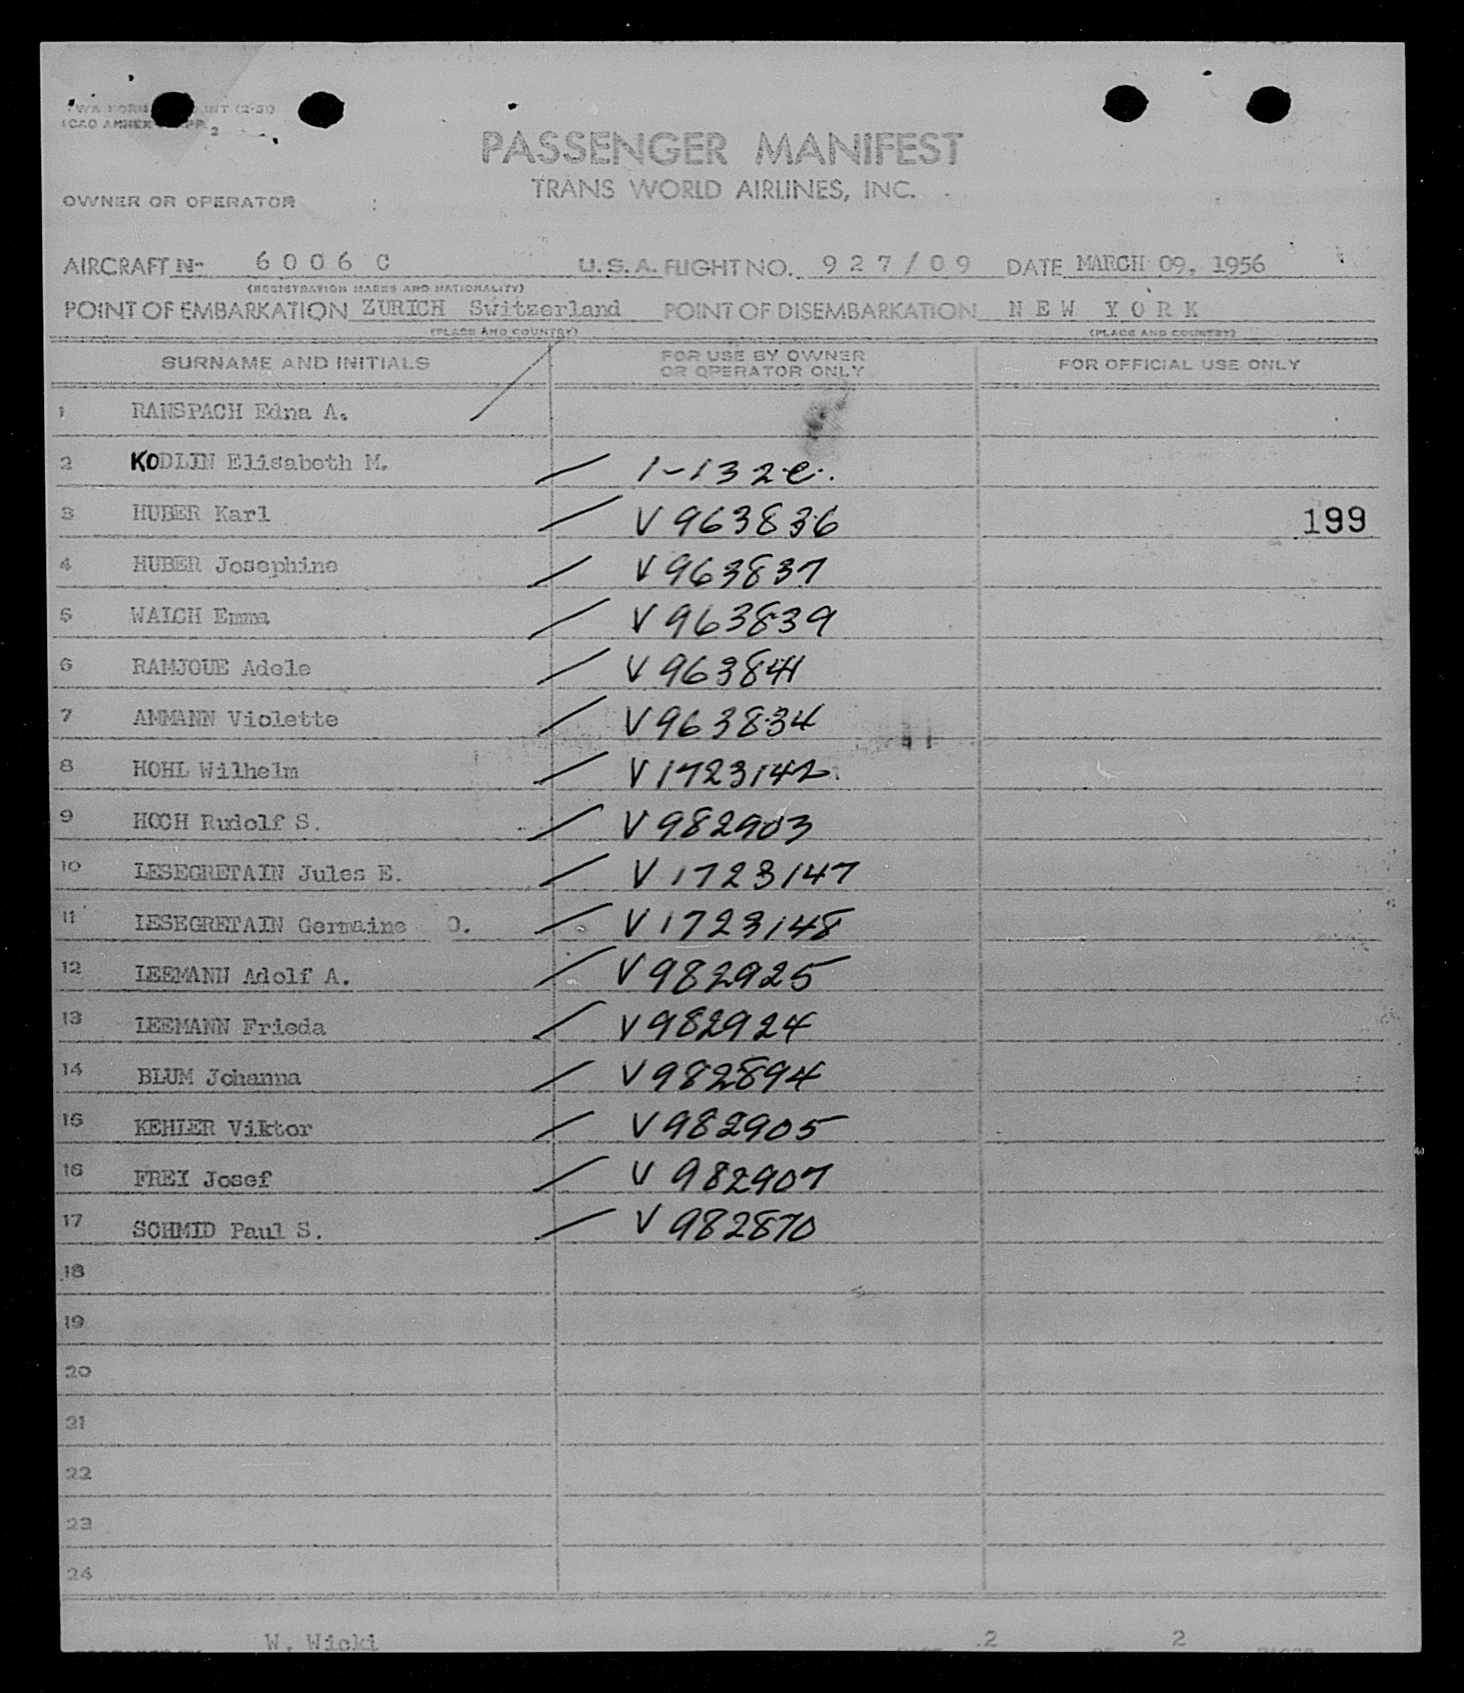 TWA FORM INT (2-51)
ICAO ANNEX APP. 2
PASSENGER MANIFEST
TRANS WORLD AIRLINES, INC.
OWNER OR OPERATOR :
AIRCRAFT N- 6006 C U.S.A. FLIGHT NO. 927/09 DATE MARCH 09, 1956
(REGISTRATION MARKS AND NATIONALITY)
POINT OF EMBARKATION ZURICH Switzerland POINT OF DISEMBARKATION NEW YORK
(PLACE AND COUNTRY) (PLACE AND COUNTRY)
SURNAME AND INITIALS FOR USE BY OWNER OR OPERATOR ONLY FOR OFFICIAL USE ONLY
1 RANSPACH Edna A.
2 KODLIN Elisabeth M. 1-132 e.
3 HUBER Karl V963836 199
4 HUBER Josephine V963837
5 WAICH Emma V963839
6 RAMJOUE Adele V963841
7 AMMANN Violette V963834
8 HOHL Wilhelm V1723142
9 HOCH Rudolf S. V982903
10 LESEGRETAIN Jules E. V1723147
11 LESEGRETAIN Germaine O. V1723148
12 LEEMANN Adolf A. V982925
13 LEEMANN Frieda V982924
14 BLUM Johanna V982894
15 KEHLER Viktor V982905
16 FREI Josef V982907
17 SCHMID Paul S. V982870
18
19
20
21
22
23
24
W. Wicki 2 2